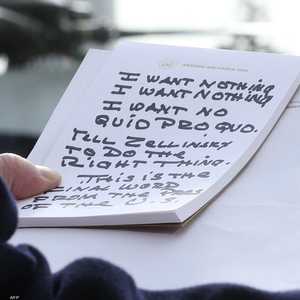 I WANT NOTHING
I WANT NOTHING
I WANT NO
QUID PRO QUO.
TELL ZELLINSKY
TO DO THE
RIGHT THING.
THIS IS THE
FINAL WORD
FROM THE PRES
OF THE U.S.
AFP